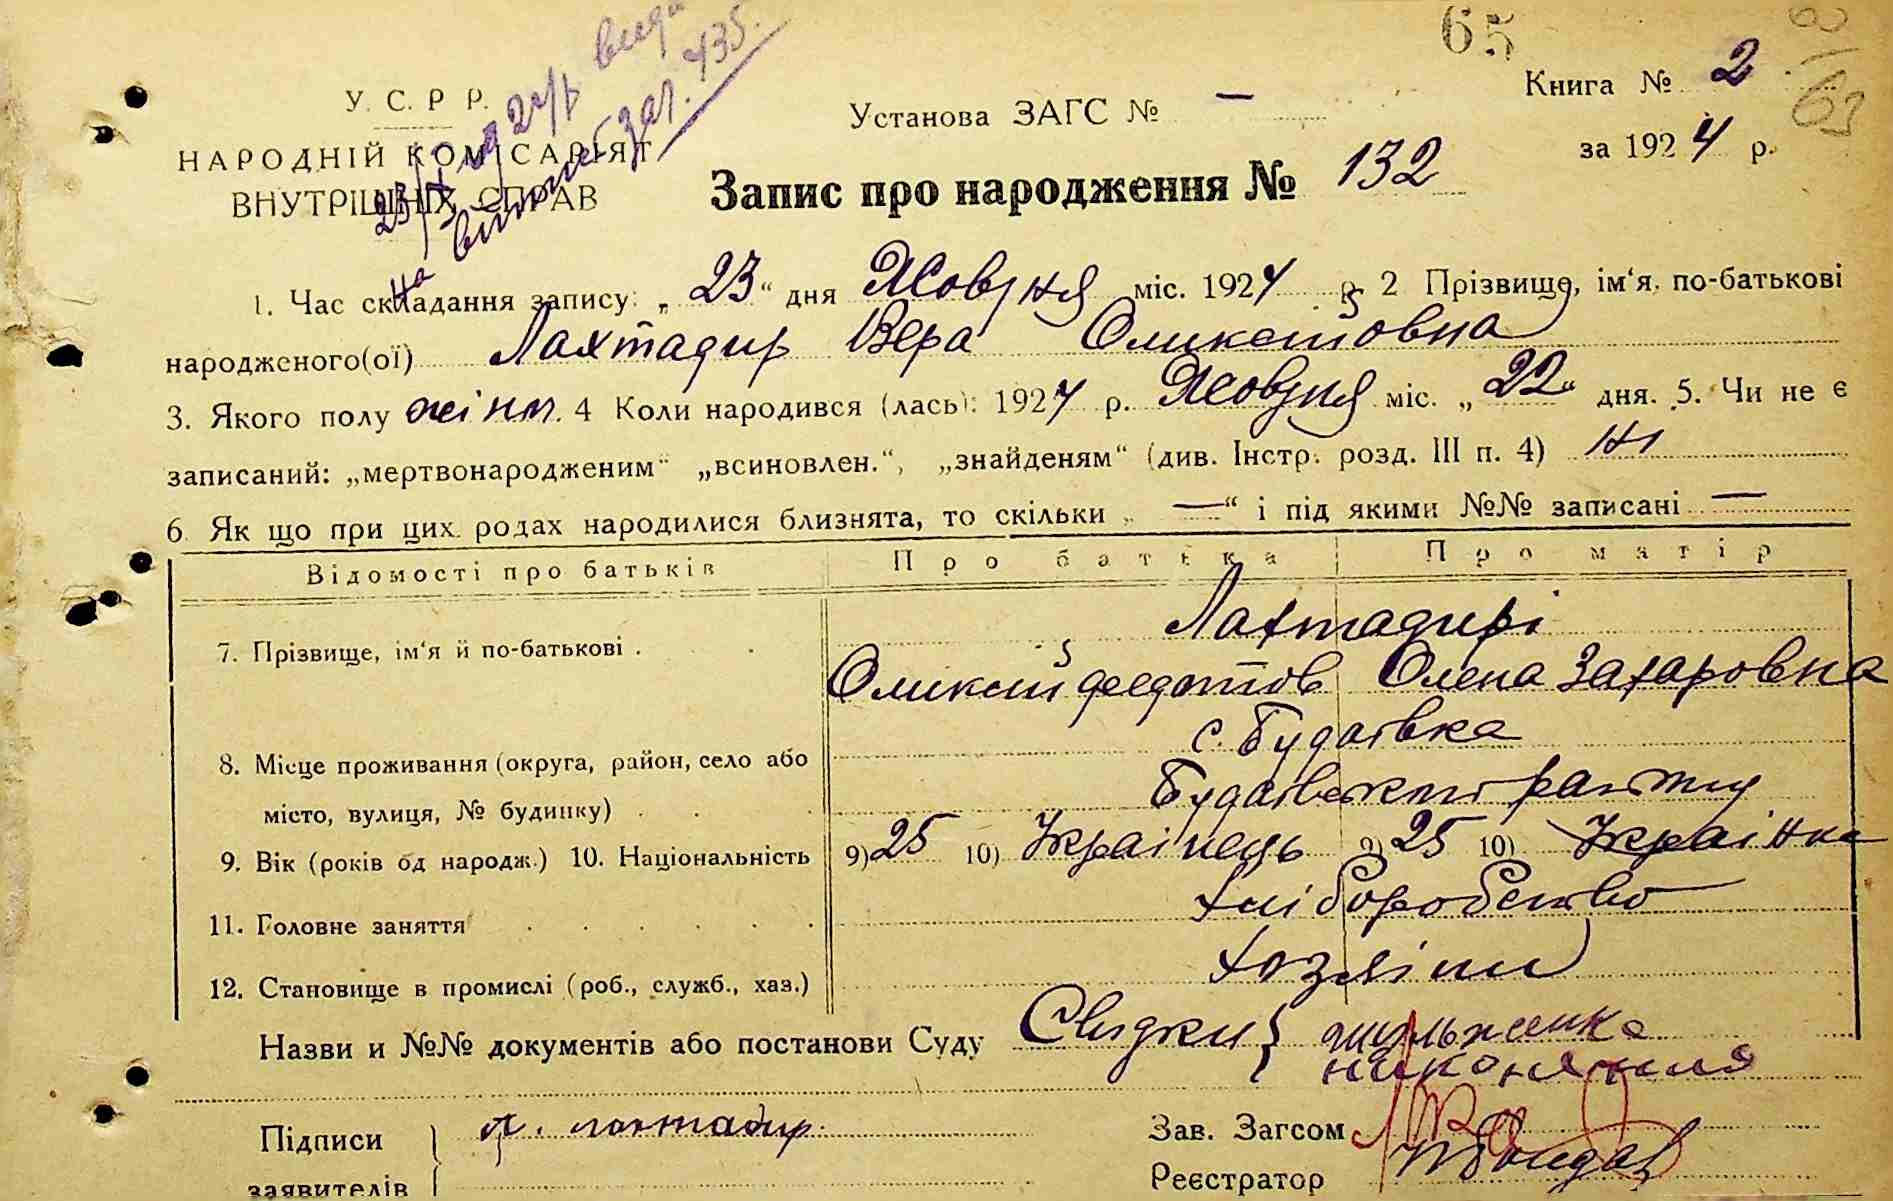 65
Книга № 2
63
У. С. Р Р.
Установа ЗАГС № —
за 1924 р.
НАРОДНІЙ КОМІСАРІЯТ
ВНУТРІШНІХ СПРАВ
Запис про народження № 132
1. Час складання запису: „ 23 “ дня Жовтня міс. 1924 р. 2 Прізвище, ім‘я, по-батькові
народженого(ої) Лахтадир Вера Олексеївна
3. Якого полу жіноч. 4 Коли народився (лась): 1924 р. Жовтня міс. „ 22 “ дня. 5. Чи не є
записаний: „мертвонародженим“ „всиновлен.“, „знайденям“ (див. Інстр. розд. III п. 4) Ні
6 Як що при цих родах народилися близнята, то скільки „ — “ і під якими №№ записані —
Відомості про батьків Про батька Про матір
7. Прізвище, ім‘я й по-батькові . Лахтадирі
Олексій Федотов Олена Захаровна
с. Будаївка
8. Місце проживання (округа, район, село або
місто, вулиця, № будинку) Будаївского району
9. Вік (років од народж.) 10. Національність 9) 25 10) Українець 9) 25 10) Українка
11. Головне заняття Хліборобство
12. Становище в промислі (роб., служб., хаз.) Хозяіни
Назви и №№ документів або постанови Суду Свидки }
Підписи } Лахтадир
Зав. Загсом
заявителів Реєстратор